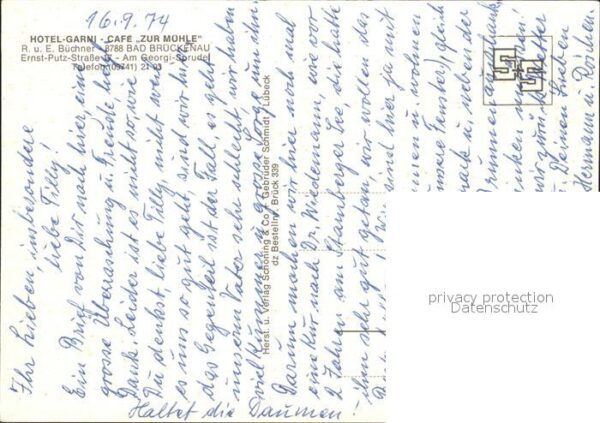 16.9.74
HOTEL-GARNI - CAFE „ZUR MÜHLE"
R. u. E. Büchner · 8788 BAD BRÜCKENAU
Ernst-Putz-Straße - Am Georgi-Sprudel
Telefon (09741)
Ihr Lieben, insbesondere
liebe Tilly!
Ein Brief von Dir nach hier eine
grosse Überraschung u. Freude, hab
Dank. Leider ist es nicht so, wie
Du denkst, liebe Tilly, nicht weil
es uns so gut geht, sind wir hier,
das Gegenteil ist der Fall, es geht
unserm Vater sehr schlecht, wir haben
viel Kummer u. grosse Sorge, ihn.
Darum machen wir hier noch mal
eine Kur nach Dr. Wiedemann, wie vor
2 Jahren am Starnberger See, die hatte
ihm sehr gut getan, wir wollen das
sind hier ja mit
u. wohnen
unsere Fenster), gleich
u. neben der
Brunnen
Wetter
Deinen Lieben
Hermann u. Dorchen.
Haltet die Daumen!
Herst. u. Verlag Schöning & Co. + Gebrüder Schmidt, Lübeck
Bestellnr. Brück 339
privacy protection
Datenschutz